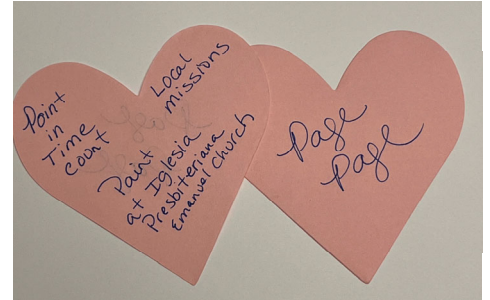 Point
in
Time
Count
Local
missions
Paint
at Iglesia
Presbiteriana
Emanuel Church
Page
Page